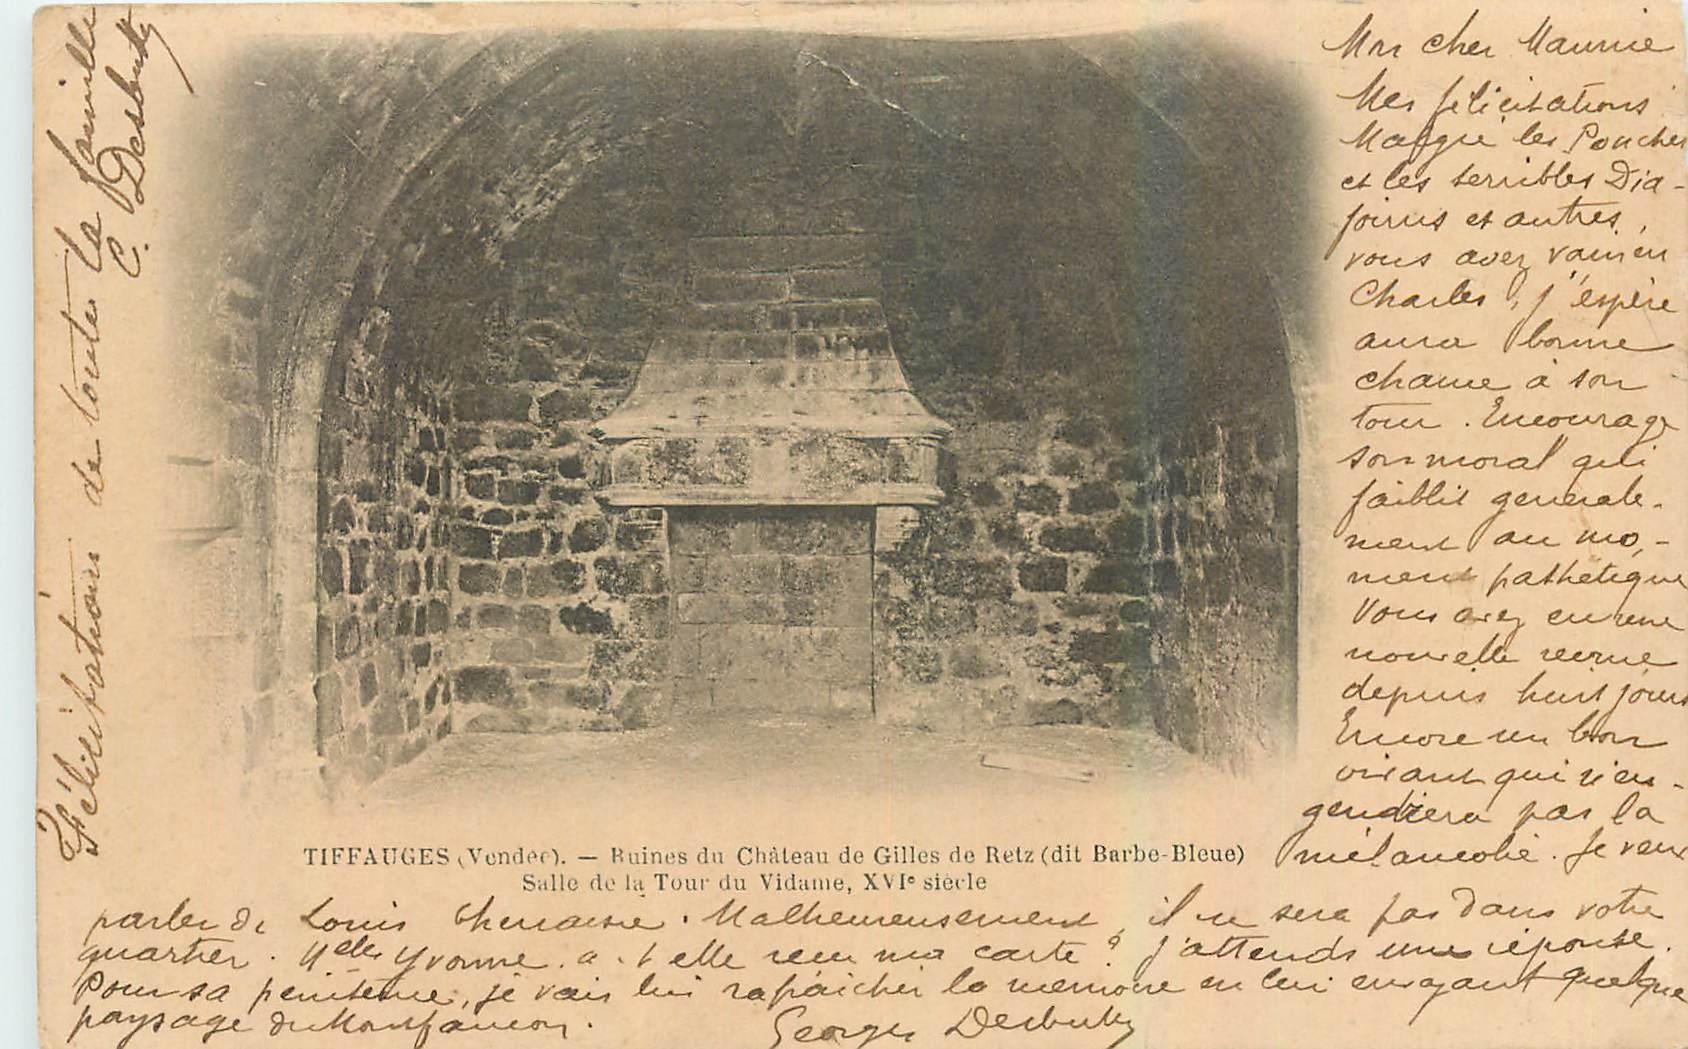 Mon cher Maurice
Mes félicitations
Malgré les Poucher
et les terribles Dia-
foirus et autres,
vous avez vaincu
Charles, j'espère
aura bonne
chance à son
tour. Encourage
son moral qui
faiblit generale-
ment au mo-
ment pathétique
Vous avez eu une
nouvelle recrue
depuis huit jours
Encore un bon
vivant qui n'en-
gendrera pas la
mélancolie. Je veux
parler de Louis. Malheureusement, il ne sera pas dans votre
quartier. Melle Yvonne a-t-elle reçu ma carte? J'attends une réponse.
Pour sa pénitence, je vais lui rafraichir la memoire en lui envoyant quelque
paysage du Montfaucon.
Georges
Félicitations de toute la famille
C.
TIFFAUGES (Vendée). — Ruines du Château de Gilles de Retz (dit Barbe-Bleue)
Salle de la Tour du Vidame, XVIe siècle